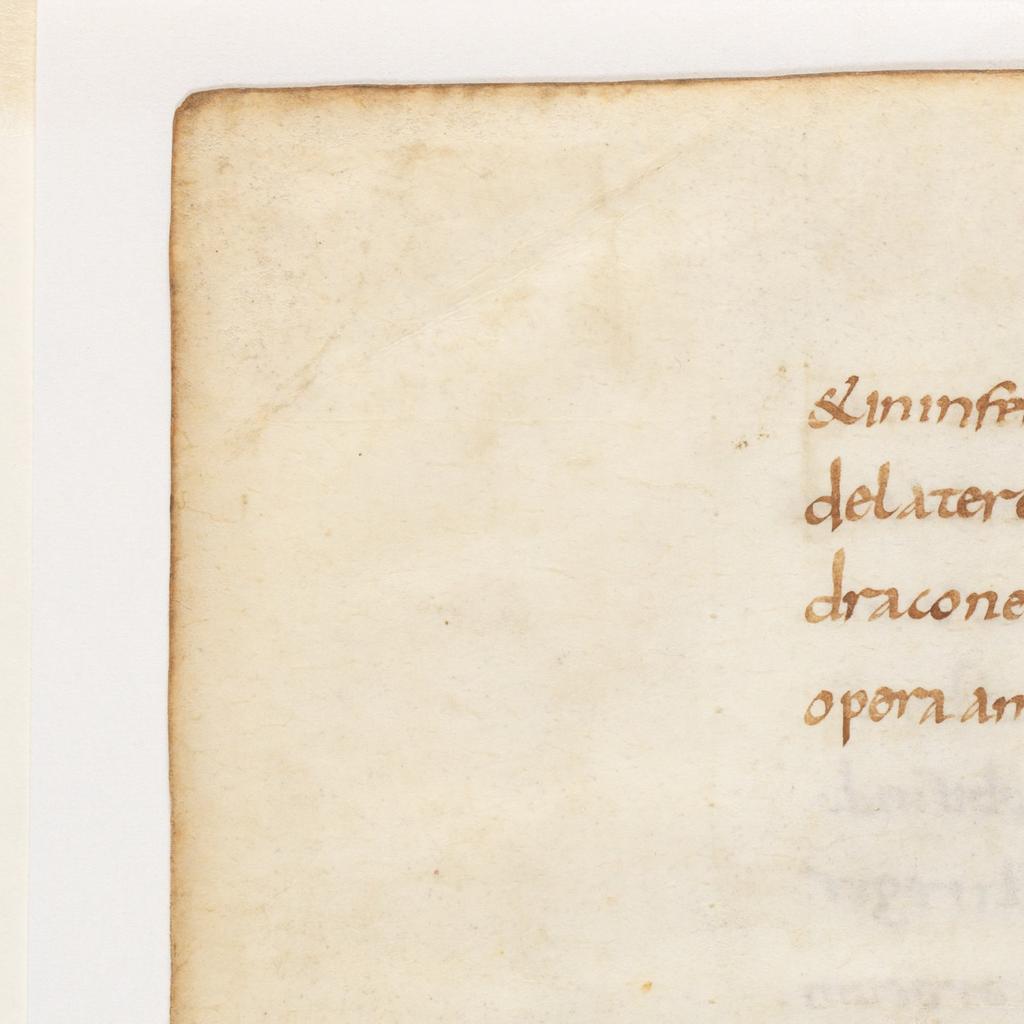 &ininfe
delatere
dracone
opera an